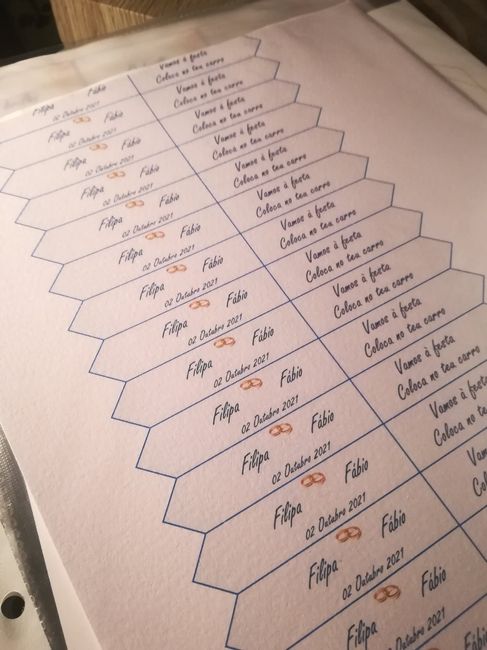 Filipa Fábio
02 Outubro 2021
Vamos à festa
Coloca no teu carro
Filipa Fábio
02 Outubro 2021
Vamos à festa
Coloca no teu carro
Filipa Fábio
02 Outubro 2021
Vamos à festa
Coloca no teu carro
Filipa Fábio
02 Outubro 2021
Vamos à festa
Coloca no teu carro
Filipa Fábio
02 Outubro 2021
Vamos à festa
Coloca no teu carro
Filipa Fábio
02 Outubro 2021
Vamos à festa
Coloca no teu carro
Filipa Fábio
02 Outubro 2021
Vamos à festa
Coloca no teu carro
Filipa Fábio
02 Outubro 2021
Vamos à festa
Coloca no teu carro
Filipa Fábio
02 Outubro 2021
Vamos à festa
Coloca no teu carro
Filipa Fábio
02 Outubro 2021
Vamos à festa
Coloca no teu carro
Filipa Fábio
02 Outubro 2021
Vamos à festa
Coloca no teu carro
Filipa Fábio
02 Outubro 2021
Vamos à festa
Coloca no teu
Filipa Fábio
02 Outubro 2021
Filipa Fábio